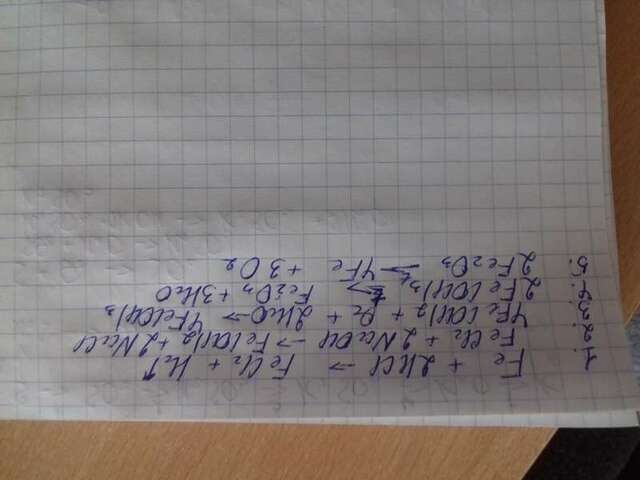 1. Fe + 2HCl → FeCl2 + H2↑
2. FeCl2 + 2NaOH → Fe(OH)2 + 2NaCl
3. 4Fe(OH)2 + O2 + 2H2O → 4Fe(OH)3
4. 2Fe(OH)3 t→ Fe2O3 + 3H2O
5. 2Fe2O3 t→ 4Fe + 3O2